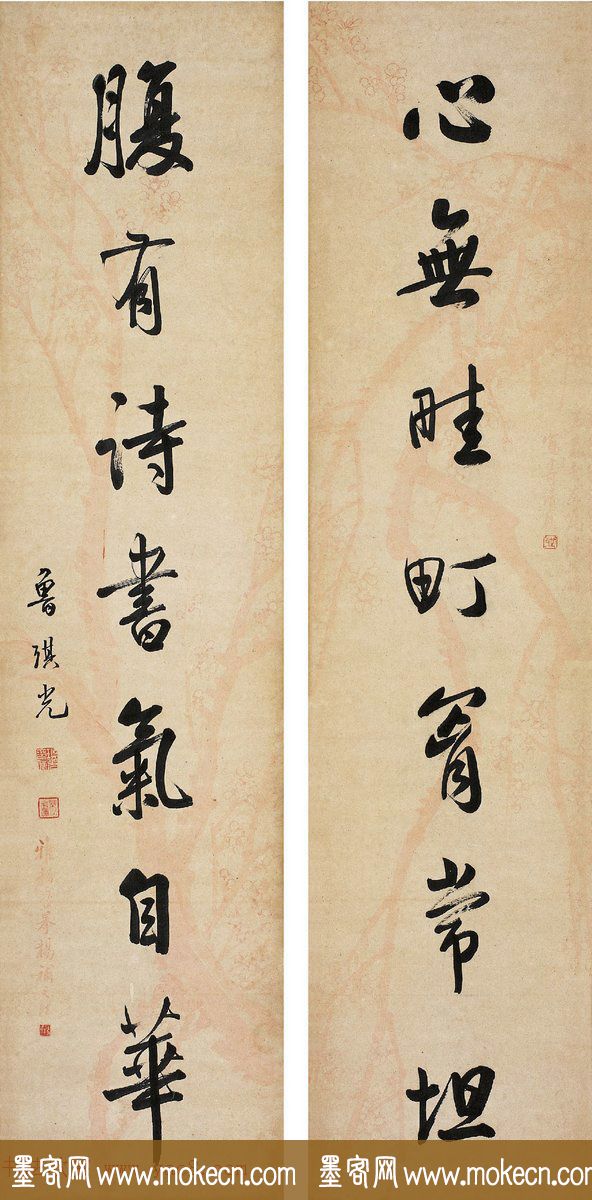 心無畦町胷常坦
腹有詩書氣自華
魯琪光
墨客网 www.mokecn.com
墨客网 www.mokecn.com